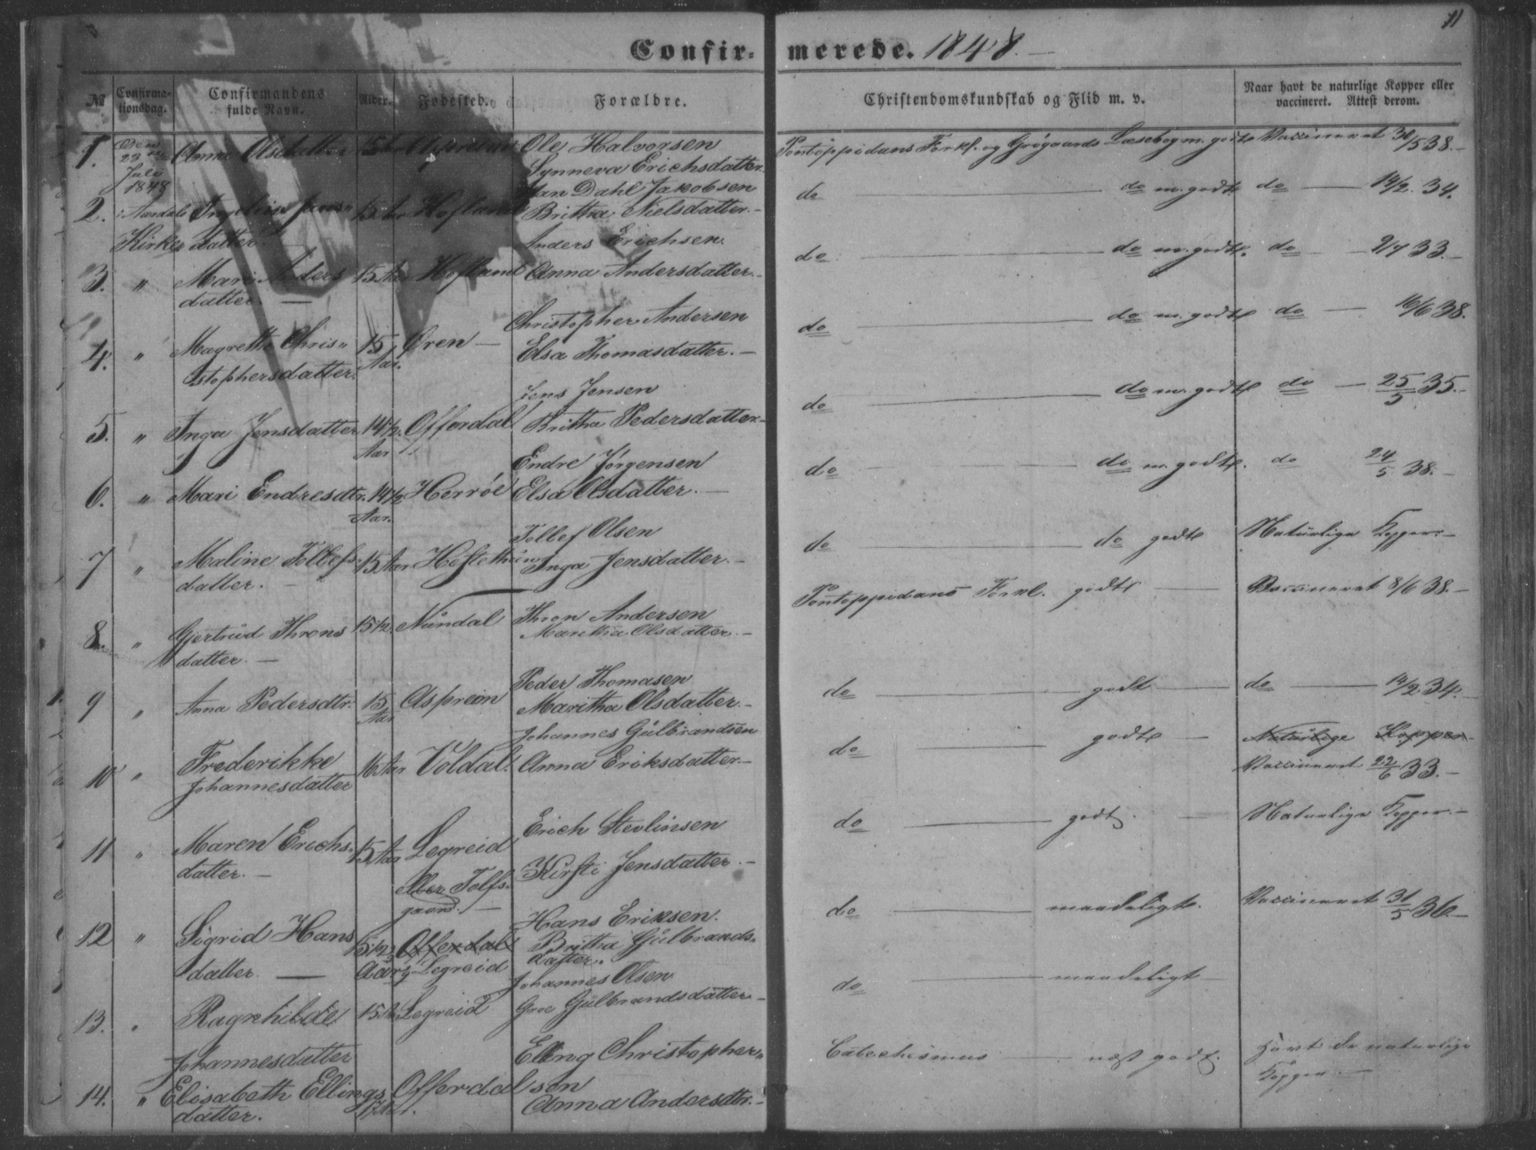 11
Confirmerede. 1848.
№ Confirmationsdag. Confirmandens fulde Navn. Alder. Fødested. Forældre. Christendomskundskab og Flid m. v. Naar havt de naturlige Kopper eller vaccineret. Attest derom.
1. Den 23de Juli 1848 Anna Olsdatter 15 Aar
Ole Halvorsen
Synneva Erichsdatter
Pontoppidans Forkl. og Grögaards Læsebog m. godt Vaccineret 31/5 38.
2. Aardals Kirke Ingebiør Jans-
datter 15 Aar Hofland
Jan Dahl Jakobsen
Britha Nielsdatter.
do do m. godt do 14/2. 34.
3. " Mari Anders
datter. 15 Aar Hofland
Anders Erichsen.
Anna Andersdatter.
do do m. godt. do 9/7 33.
4. " Magrethe Chris-
stophersdatter. 15 Aar. Øren
Christopher Andersen
Elsa Thomasdatter.
do do m. godt do 16/6 38.
5. " Inga Jensdatter 14½ Aar Offerdal
Jens Jensen
Britha Pedersdatter.
do do m. godt do 25/5 35.
6. " Mari Endresdtr. 14½ Aar. Herrøe
Endre Jørgensen
Elsa Olsdatter.
do do m. godt. do 24/5 38.
7 " Maline Tollefs-
datter. 15 Aar
Tollef Olsen
Inga Jensdatter.
do do godt Naturlige Kopper.
8. " Gjertrud Throns
datter. 15½ Nundal
Thron Andersen
Maritha Olsdatter.
Pontoppidans Forkl. godt Vaccineret 8/6 38.
9 " Anna Pedersdtr. 15 Aar Aspreim
Peder Thomasen
Maritha Olsdatter.
do godt do 14/2 34.
10 " Frederikke
Johannesdatter 16 Aar Voldal.
Johannes Gulbrandsen
Anna Eriksdatter.
do godt Naturlige Kopper
Vaccineret 22/6 33.
11 " Maren Erichs-
datter. 15 Aar Legreid
eller Tolfs-
gaard.
Erich Stevlinsen
Kirsti Jensdatter.
do godt. Naturlige Kopper.
12 " Sigrid Hans
datter. 15½ Aar Offerdal
Legreid
Hans Eriksen.
Britha Gulbrands-
datter.
do maadeligt. Vaccineret 31/5 36
13. " Ragnhilde
Johannesdatter 15½ Legreid
Johannes Olsen
Groe Gulbrandsdatter
do maadeligt
14. " Elisabeth Ellings
datter. Offerdal
Elling Christopher-
sen
Anna Andersdtr.
Catechismus næst godt. Havt de naturlige
Kopper.